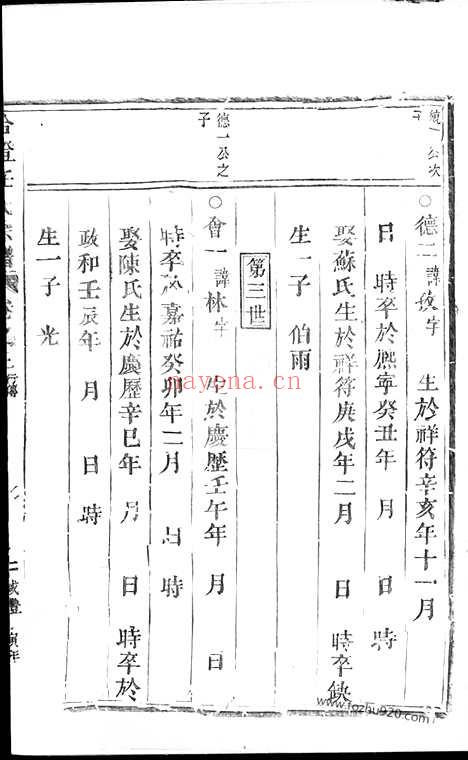 統一公次
子
○德二諱 字 生於祥符辛亥年十一月
日 時卒於熙寧癸丑年 月 日 時
娶蘇氏生於祥符庚戌年二月 日 時卒缺
生一子 伯雨
第三世
德一公之
子
○會一諱林字 生於慶歷壬午年 月 日
時卒於嘉祐癸卯年二月 日 時
娶陳氏生於慶歷辛巳年 月 日 時卒於
政和壬辰年 月 日 時
生一子 光
nayona.cn
www.fozhu920.com